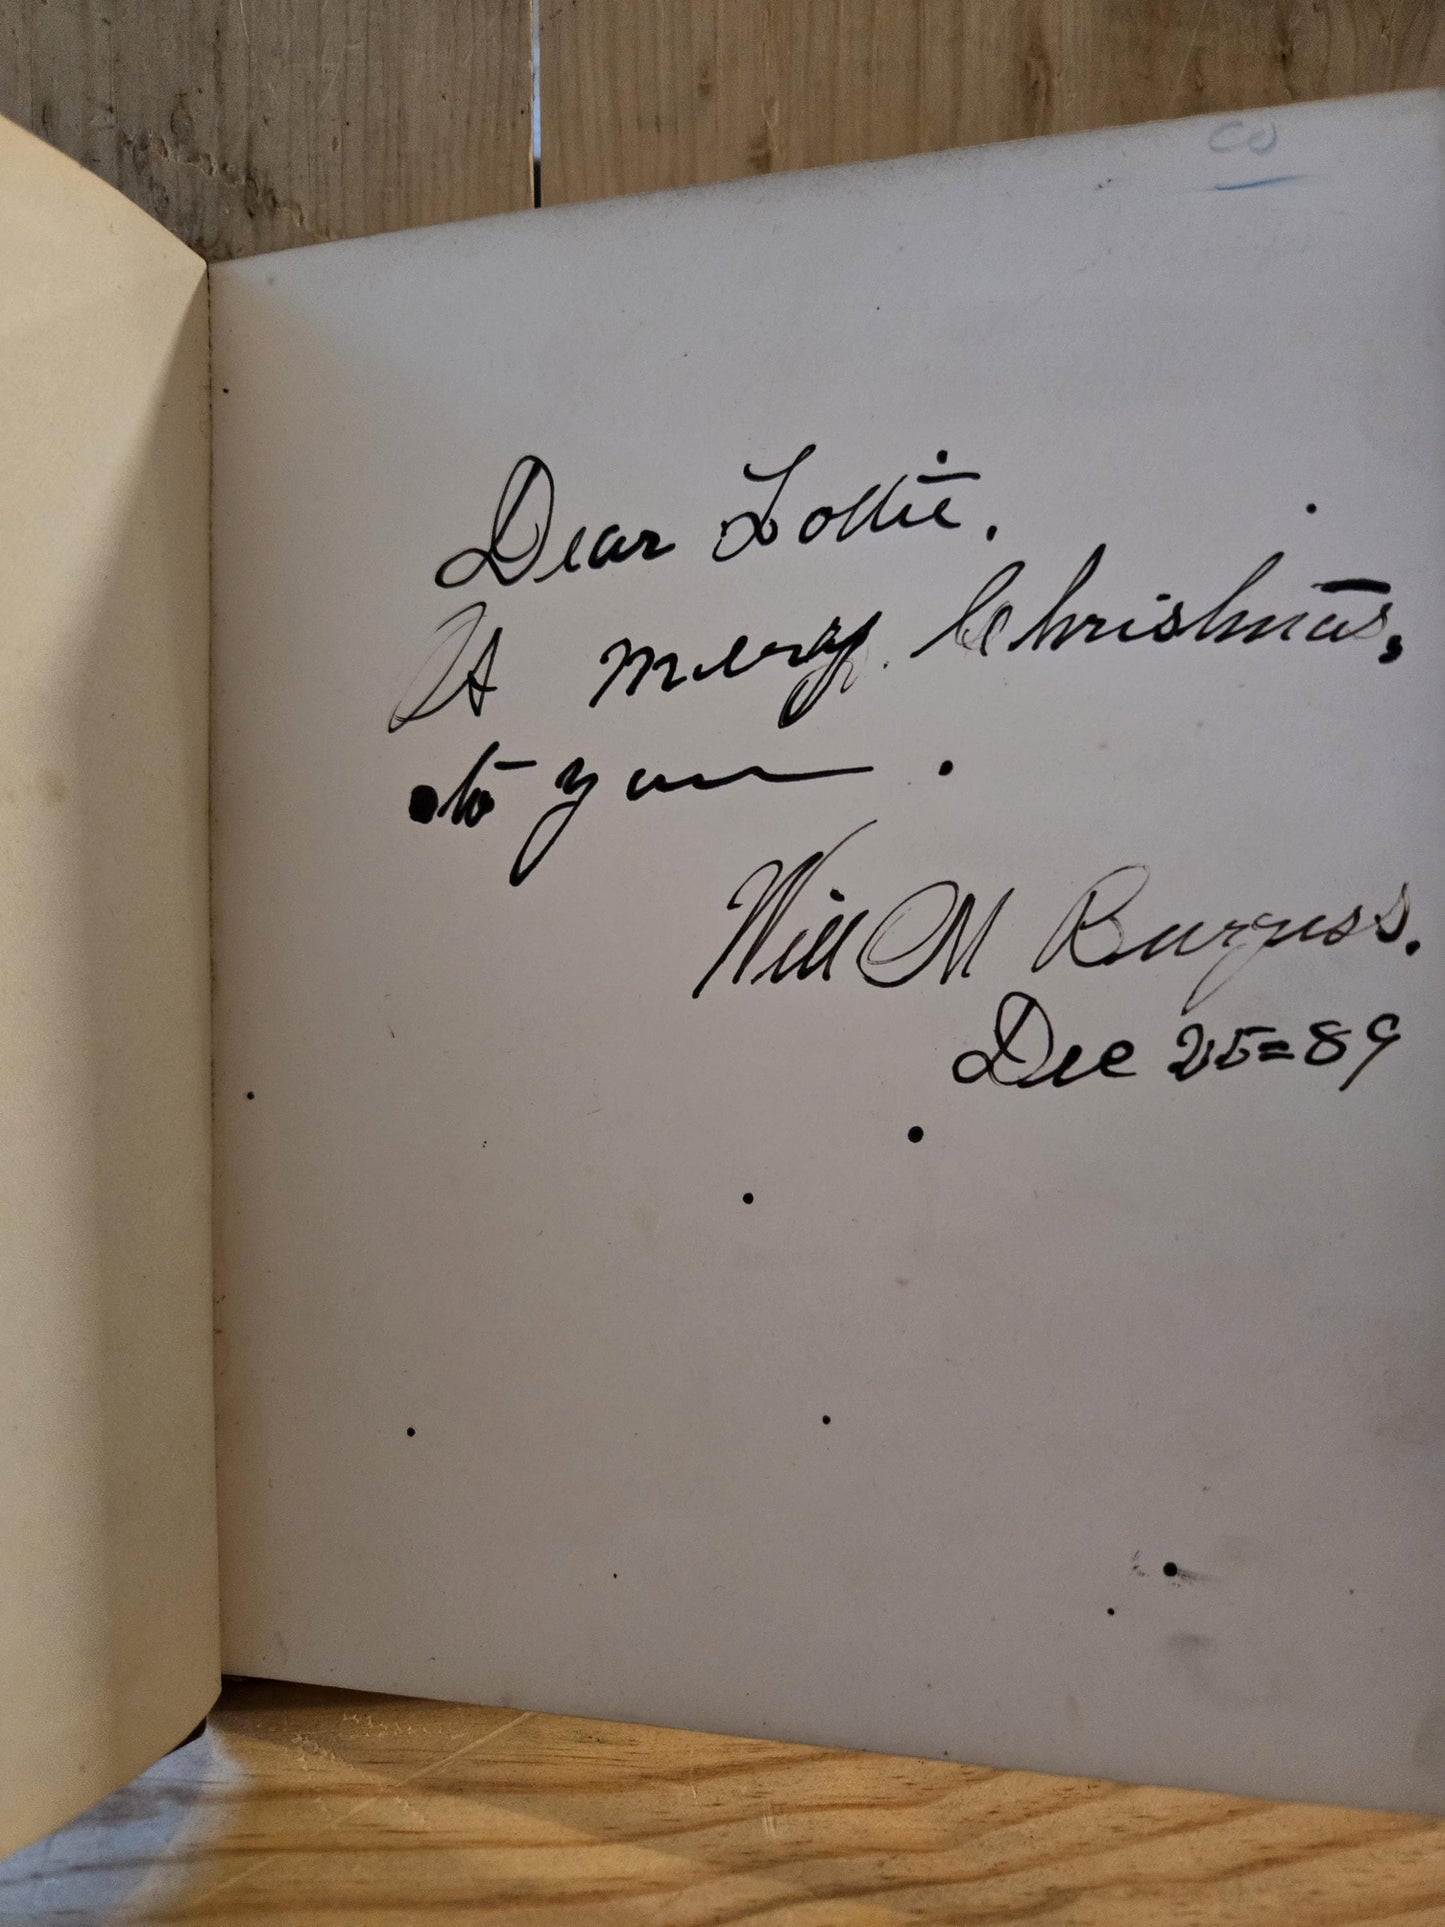 Dear Lottie.
A merry Christmas,
to you.
Will M Burgess.
Dec 25=89